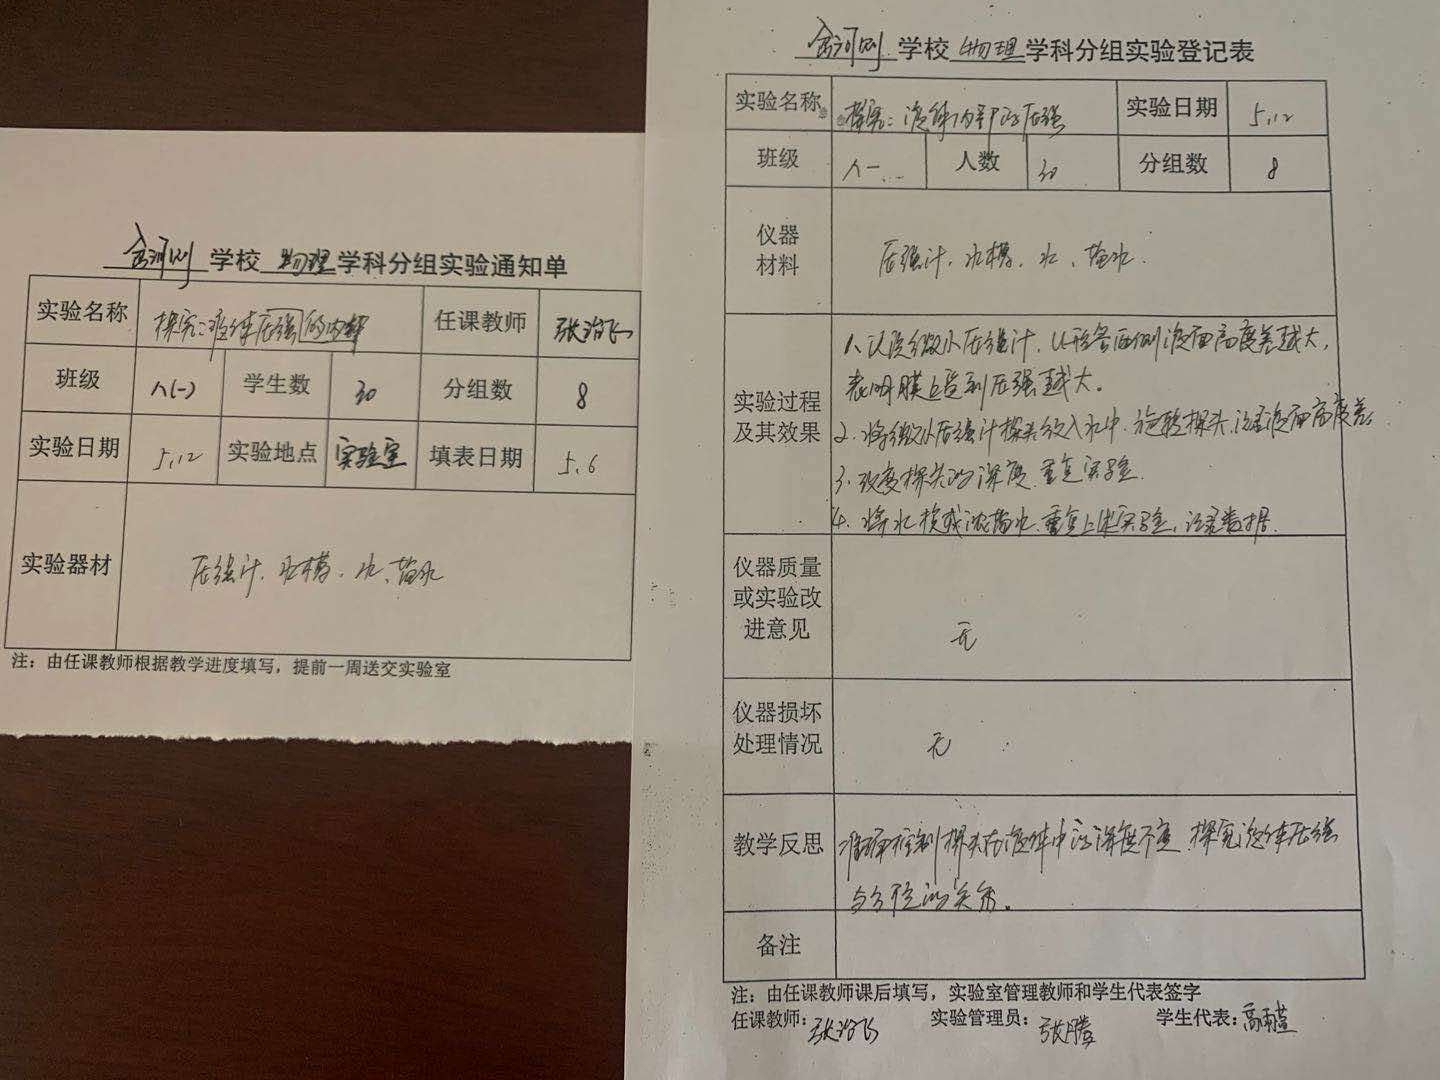 学校 物理 学科分组实验通知单
实验名称 探究:液体压强的内部 任课教师 张治飞
班级 八(一) 学生数 30 分组数 8
实验日期 5.12 实验地点 实验室 填表日期 5.6
实验器材 压强计、水槽、水、盐水
注：由任课教师根据教学进度填写，提前一周送交实验室
学校 物理 学科分组实验登记表
实验名称 探究:液体内部的压强 实验日期 5.12
班级 八一 人数 30 分组数 8
仪器
材料
压强计、水槽、水、盐水.
实验过程
及其效果
1、认识微小压强计,U形管两侧液面高度差越大,
表明膜上受到压强越大。
2、将微小压强计探头放入水中,旋转探头,记录液面高度差。
3、改变探头的深度,重复实验.
4、将水换成浓盐水,重复上述实验,记录数据.
仪器质量
或实验改
进意见
无
仪器损坏
处理情况
无
教学反思
准确控制探头在液体中的深度不变,探究液体压强
与方向的关系。
备注
注：由任课教师课后填写，实验室管理教师和学生代表签字
任课教师：张治飞 实验管理员：张腾 学生代表：